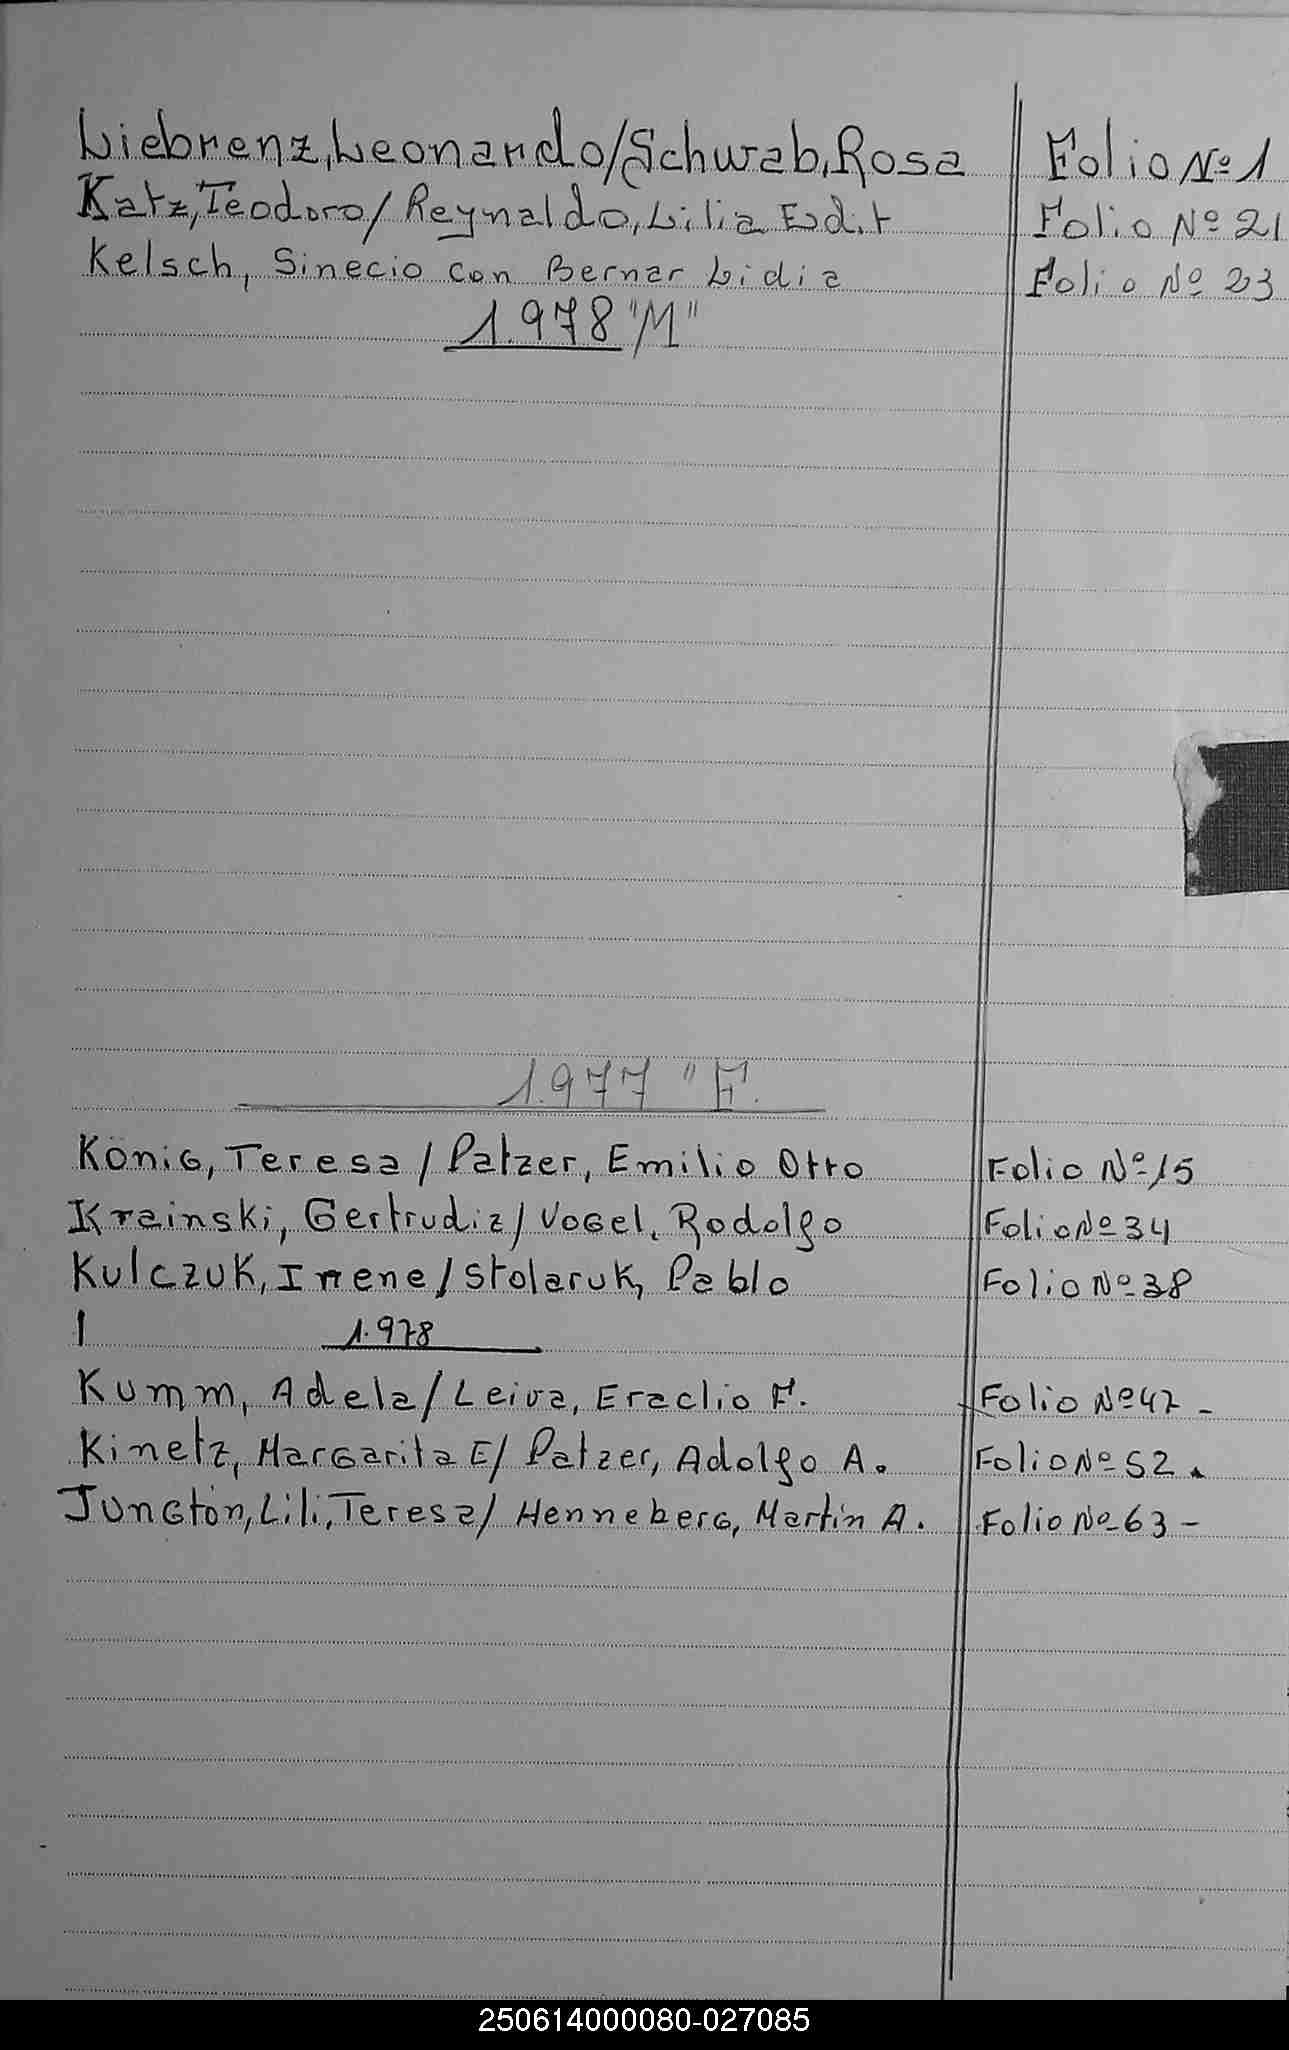 Liebrenz, Leonardo/Schwab, Rosa Folio Nº 1
Katz, Teodoro/Reynaldo, Lilia Edit Folio Nº 21
Kelsch, Sinecio con Bernar Lidia Folio Nº 23
1.978 "M"
1.977 "F.
König, Teresa/Patzer, Emilio Otto Folio Nº 15
Krainski, Gertrudiz/Vogel, Rodolfo Folio Nº 34
Kulczuk, Irene/Stolaruk, Pablo Folio Nº 38
1.978
Kumm, Adela/Leiva, Eraclio F. Folio Nº 47 -
Kinetz, Margarita E/Patzer, Adolfo A. Folio Nº 52.
Jungton, Lili, Teresa/Henneberg, Martin A. Folio Nº 63 -
250614000080-027085